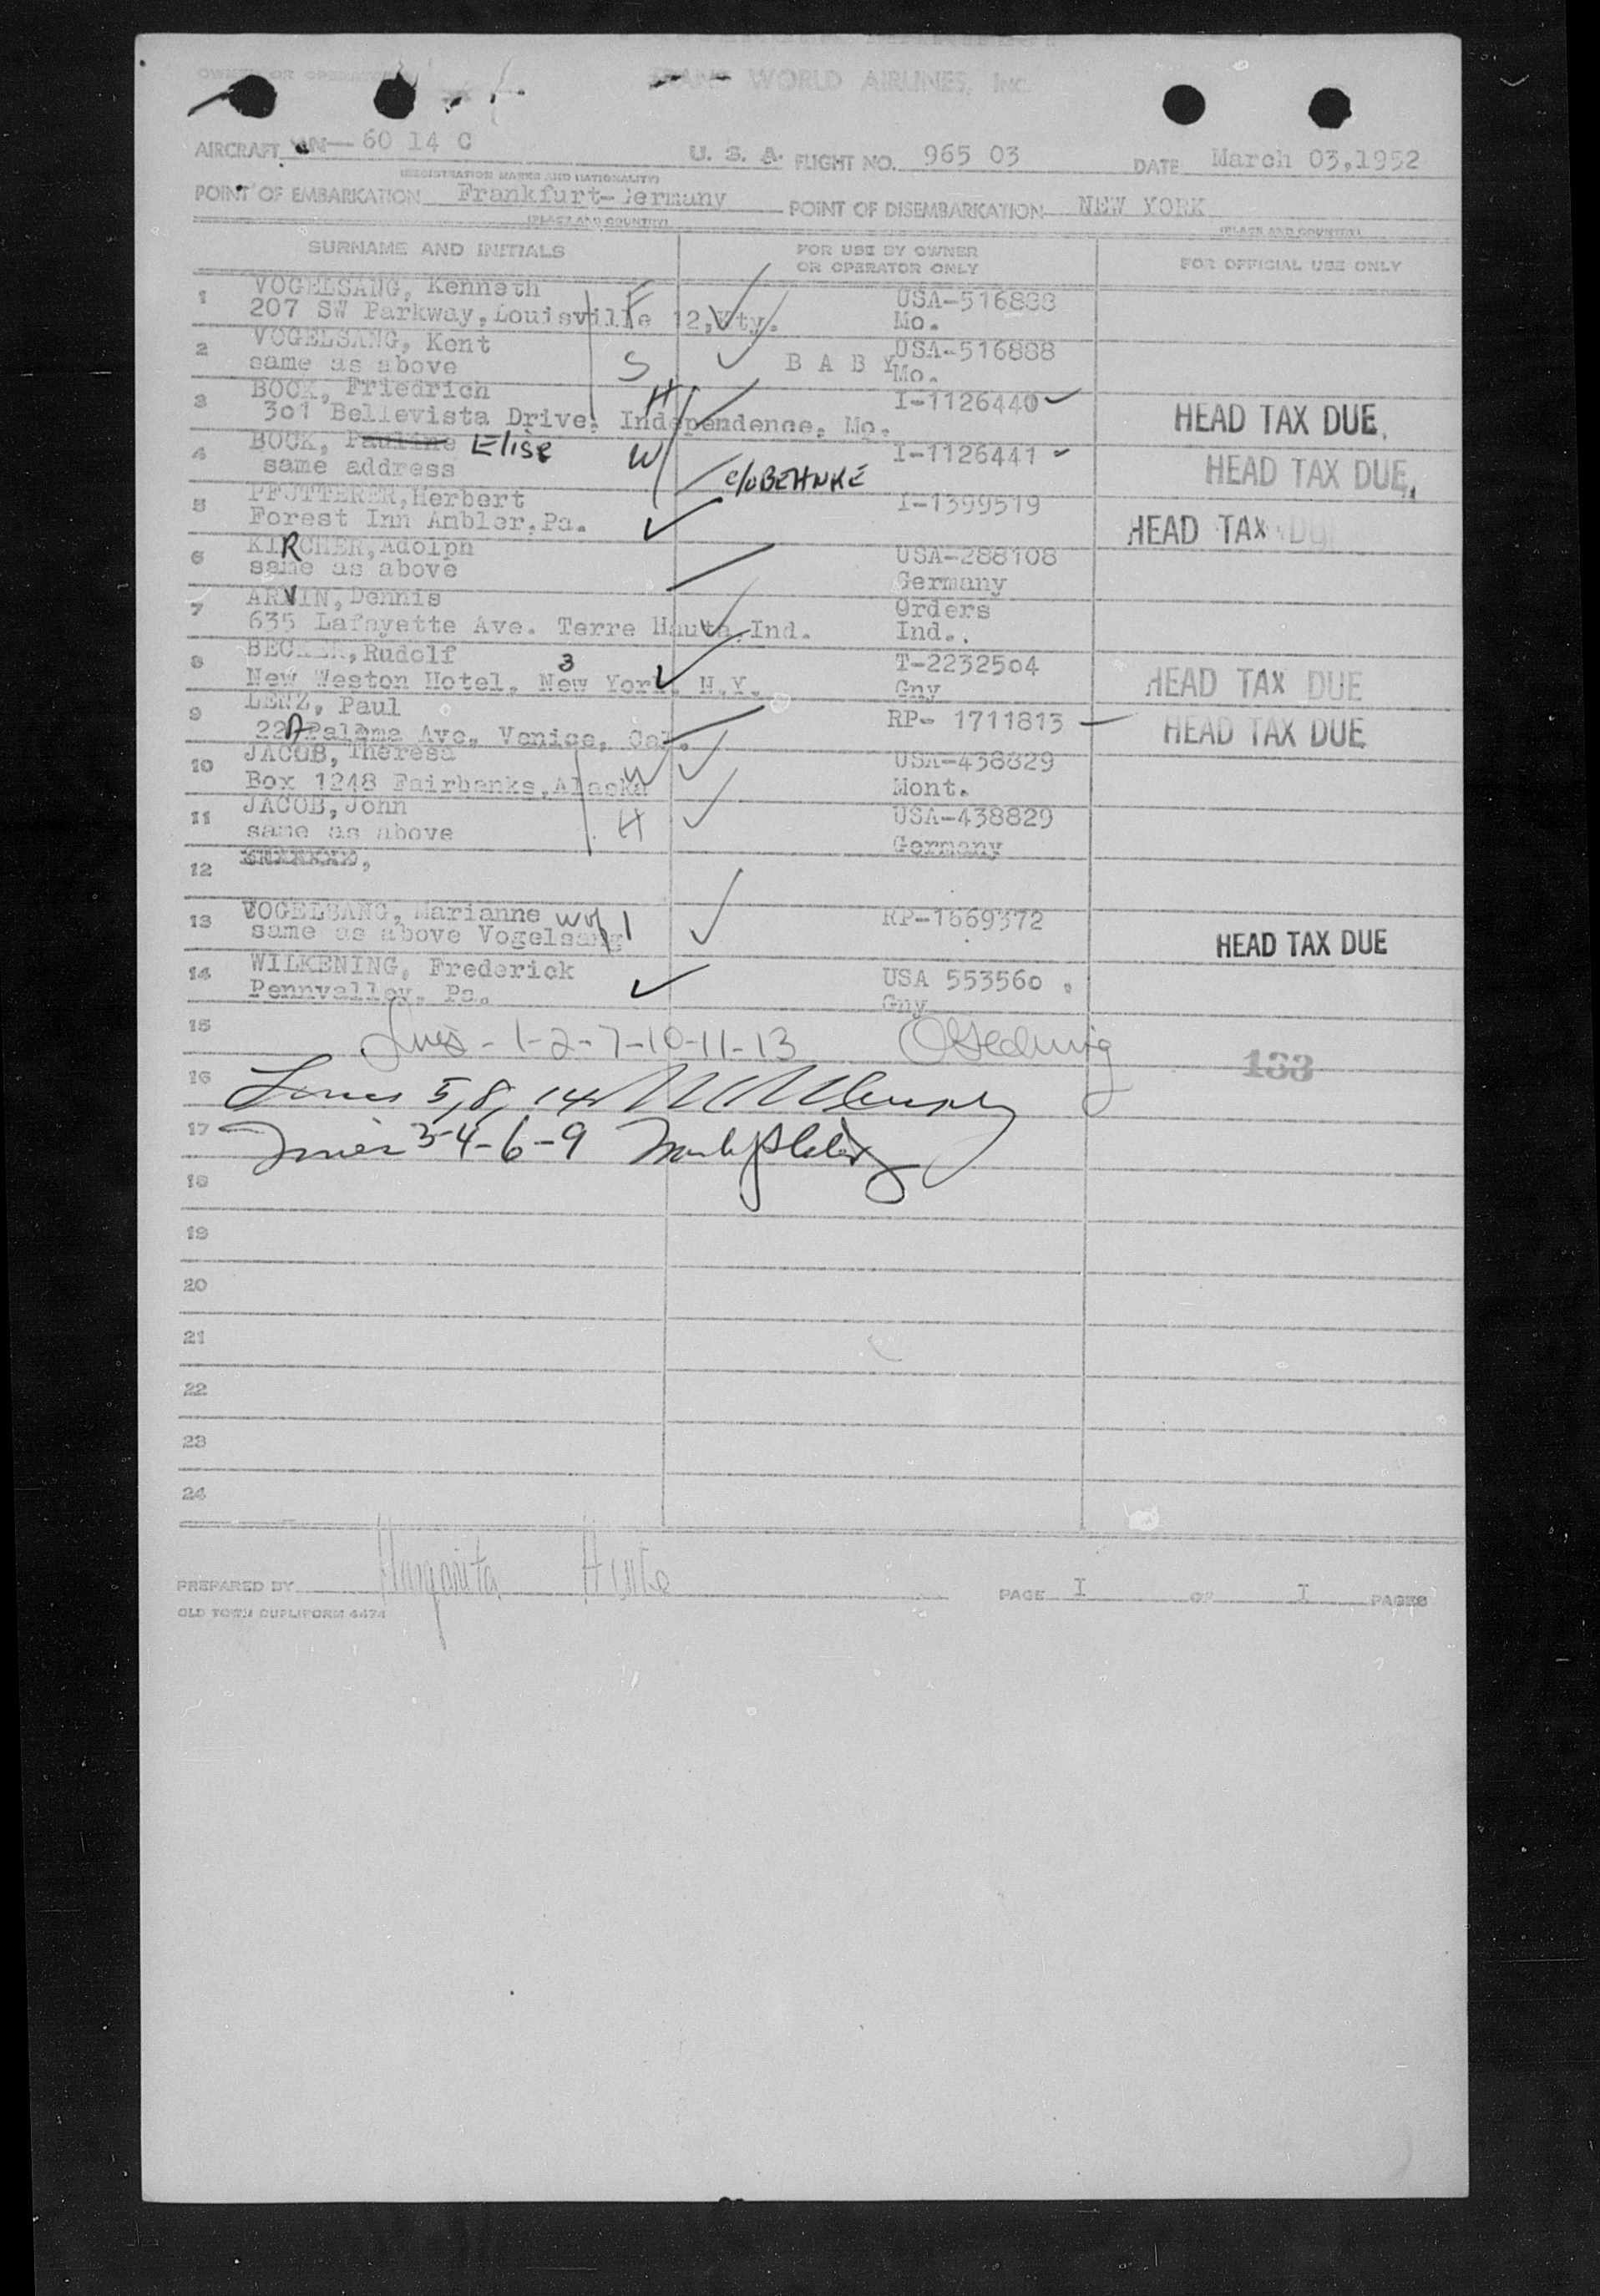 OWNER OR OPERATOR TRANS WORLD AIRLINES, Inc.
AIRCRAFT N—60 14 C U. S. A. FLIGHT NO. 965 03 DATE March 03,1952
(REGISTRATION MARKS AND NATIONALITY)
POINT OF EMBARKATION Frankfurt-Germany POINT OF DISEMBARKATION NEW YORK
(PLACE AND COUNTRY) (PLACE AND COUNTRY)
SURNAME AND INITIALS FOR USE BY OWNER OR OPERATOR ONLY FOR OFFICIAL USE ONLY
1 VOGELSANG, Kenneth F USA-516888
207 SW Parkway, Louisville 12, Kty. Mo.
2 VOGELSANG, Kent USA-516888
same as above S B A B Y Mo.
3 BOCK, Friedrich H I-1126440
301 Bellevista Drive, Independence, Mo. HEAD TAX DUE.
4 BOCK, Pauline Elise W I-1126441
same address c/o BEHNKE HEAD TAX DUE.
5 PFUTTERER, Herbert I-1399519
Forest Inn Ambler, Pa. HEAD TAX DU
6 KIRCHER, Adolph USA-288108
same as above Germany
7 ARVIN, Dennis Orders
635 Lafayette Ave. Terre Haute, Ind. Ind.
8 BECKER, Rudolf 3 T-2232504
New Weston Hotel, New York, N.Y. Gny HEAD TAX DUE
9 LENZ, Paul RP- 1711813 HEAD TAX DUE
22A Paloma Ave. Venice, Cal.
10 JACOB, Theresa W USA-438829
Box 1248 Fairbanks, Alaska Mont.
11 JACOB, John H USA-438829
same as above Germany
12
13 VOGELSANG, Marianne W of 1 RP-1669372
same as above Vogelsang HEAD TAX DUE
14 WILKENING, Frederick USA 553560
Pennvalley, Pa. Gny
15 Lines - 1-2-7-10-11-13
16 Lines 5, 8, 14 133
17 Lines 3-4-6-9
18
19
20
21
22
23
24
PREPARED BY Margarita PAGE I OF I PAGES
OLD TOWN DUPLIFORM 4474